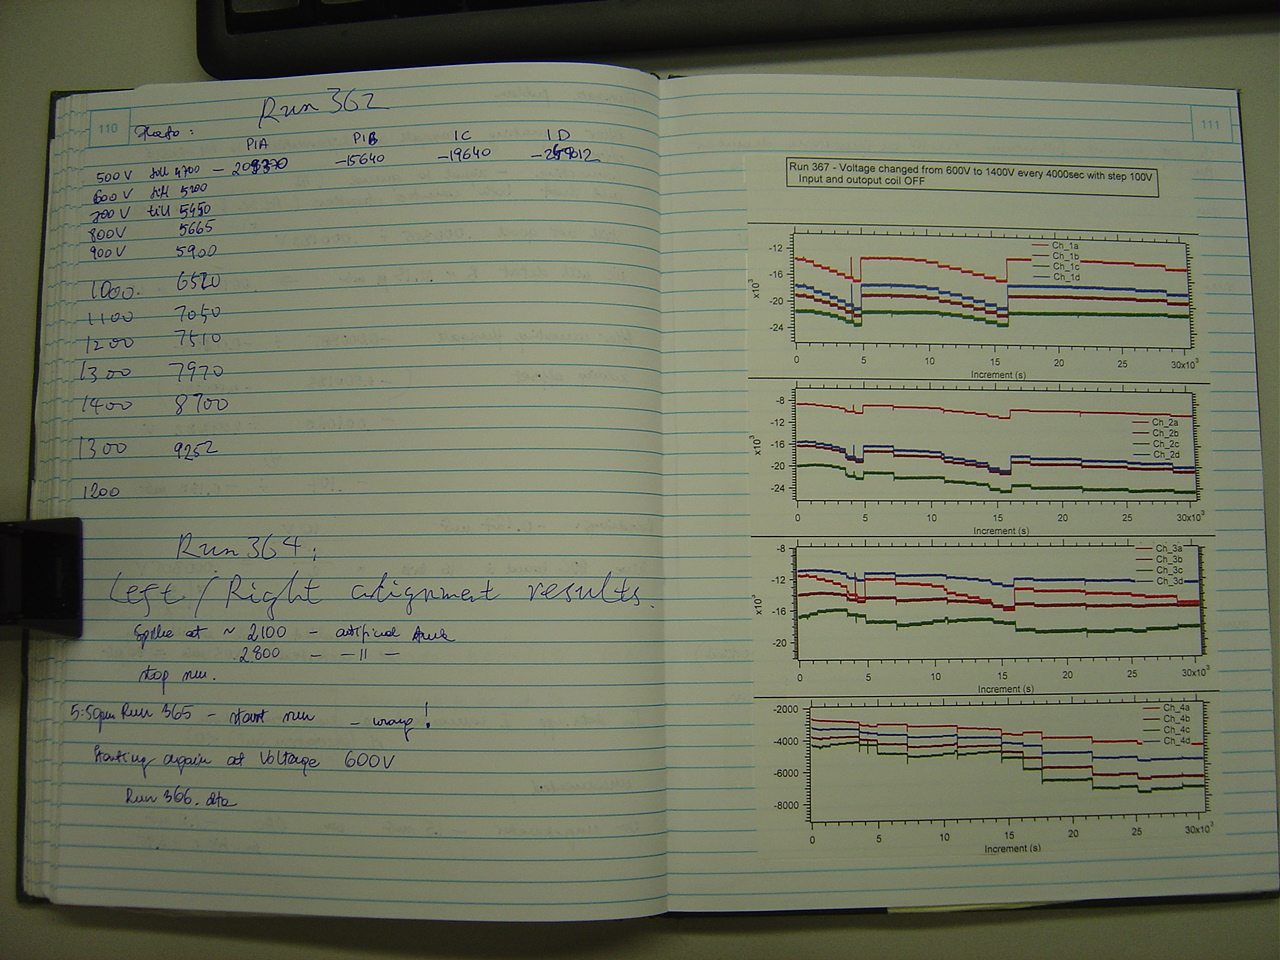 110
Run 362
Photo :
PIA PIB IC ID
500V till 4700 — -15640 -19640
600V till 5200
700V till 5450
800V 5665
900V 5900
1000. 6520
1100 7050
1200 7510
1300 7970
1400 8700
1300 9252
1200
Run 364:
Left / Right alignment results.
Spike at ~ 2100 —
2800 — —11—
stop run.
5:50pm Run 365 — start run — wrong!
Starting again at Voltage 600V
Run 366.dta
111
Run 367 - Voltage changed from 600V to 1400V every 4000sec with step 100V
Input and outoput coil OFF
Ch_1a
Ch_1b
Ch_1c
Ch_1d
x10³
-12
-16
-20
-24
0 5 10 15 20 25 30x10³
Increment (s)
Ch_2a
Ch_2b
Ch_2c
Ch_2d
x10³
-8
-12
-16
-20
-24
0 5 10 15 20 25 30x10³
Increment (s)
Ch_3a
Ch_3b
Ch_3c
Ch_3d
x10³
-8
-12
-16
-20
0 5 10 15 20 25 30x10³
Increment (s)
Ch_4a
Ch_4b
Ch_4c
Ch_4d
-2000
-4000
-6000
-8000
0 5 10 15 20 25 30x10³
Increment (s)